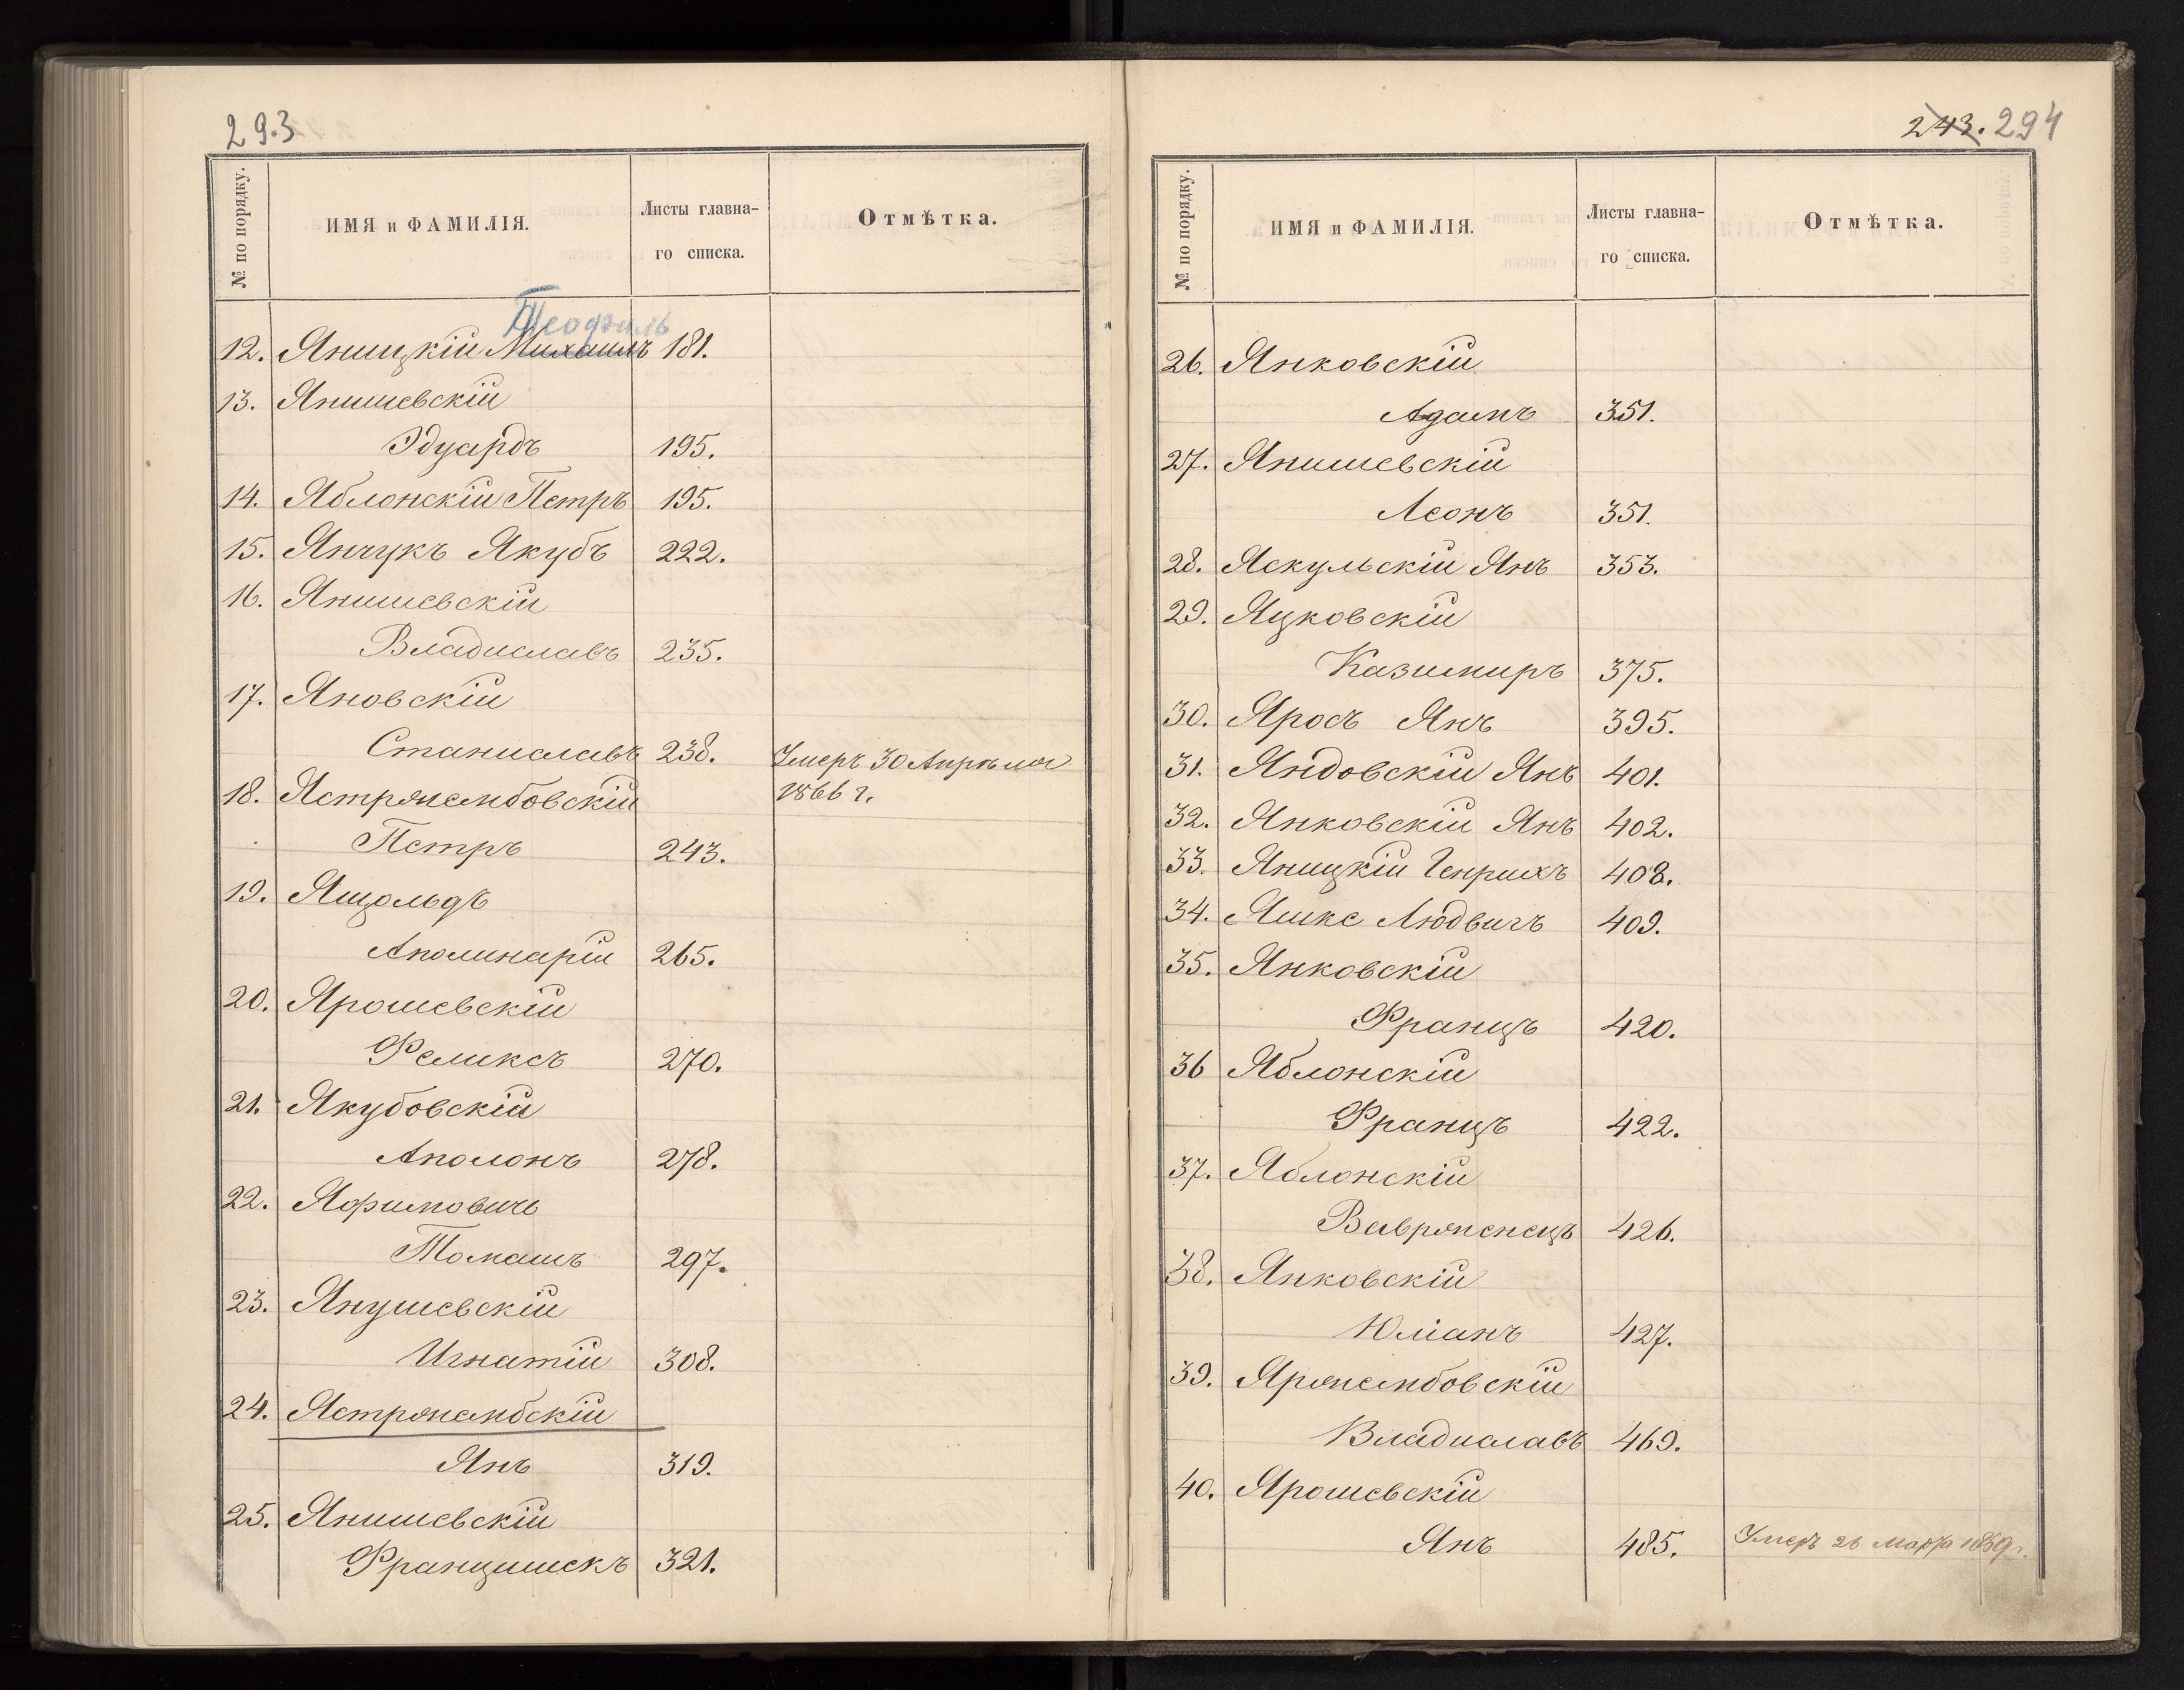 293
№ по порядку.
ИМЯ и ФАМИЛІЯ.
Листы главна-
го списка.
Отмѣтка.
Теофиль
12. Яницкій Михаилъ 181.
13. Янишевскій
Эдуардъ 195.
14. Яблонскій Петръ 195.
15. Янчукъ Якубъ 222.
16. Янишевскій
Владиславъ 235.
17. Яновскій
Станиславъ 238. Умеръ 30 Апрѣля
18. Ястржембовскій 1866 г.
Петръ 243.
19. Ящольдъ
Аполинарій 265.
20. Ярошевскій
Феликсъ 270.
21. Якубовскій
Аполонъ 278.
22. Яфимовичъ
Томашъ 297.
23. Янушевскій
Игнатій 308.
24. Ястржембскій
Янъ 319.
25. Янишевскій
Францишекъ 321.
243. 294
№ по порядку.
ИМЯ и ФАМИЛІЯ.
Листы главна-
го списка.
Отмѣтка.
26. Янковскій
Адамъ 351.
27. Янишевскій
Леонъ 351.
28. Яскульскій Янъ 353.
29. Яцковскій
Казимиръ 375.
30. Яросъ Янъ 395.
31. Яндовскій Янъ 401.
32. Янковскій Янъ 402.
33. Яницкій Генрихъ 408.
34. Яшке Людвигъ 409.
35. Янковскій
Францъ 420.
36 Яблонскій
Францъ 422.
37. Яблонскій
Вавржнецъ 426.
38. Янковскій
Юліанъ 427.
39. Яржембовскій
Владиславъ 469.
40. Ярошевскій
Янъ 485. Умеръ 26 Марта 1869 г.